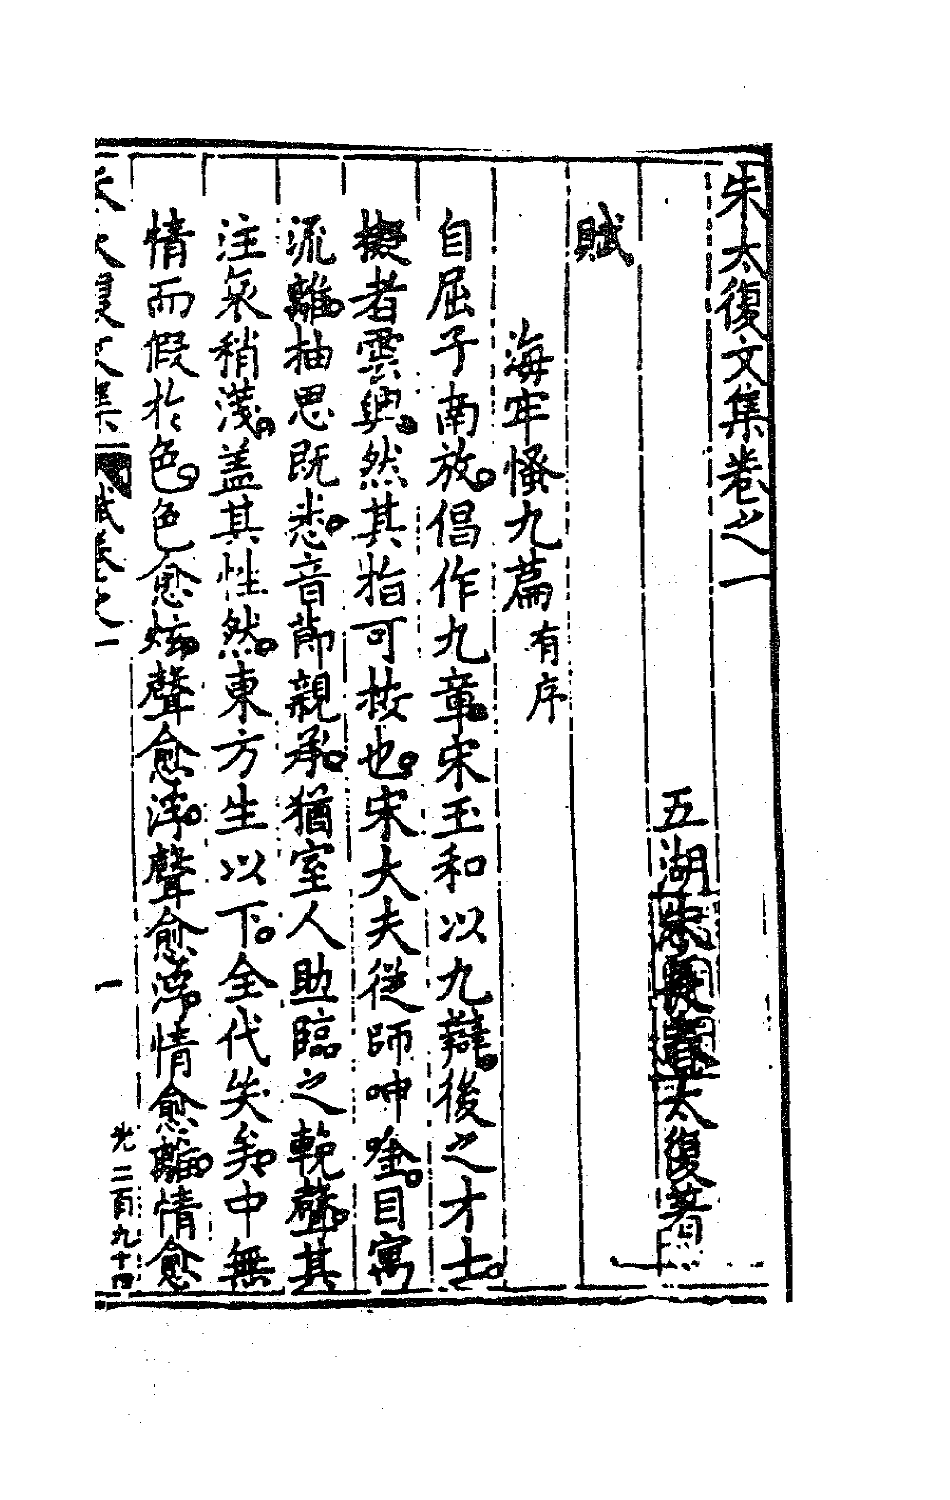 朱太復文集卷之一
五湖朱長春太復著
賦
海牢騷九篇有序
自屈子南放倡作九章宋玉和以九辯後之才士
擬者雲興然其指可按也宋大夫從師呻唫目寓
流離抽思既悲音節親承猶室人助臨之輓聲其
注哀稍淺蓋其性然東方生以下全代矣矣中無
情而假於色色愈炫聲愈淂聲愈淂情愈離情愈
朱太復文集 賦卷之一 一 光二百九十四